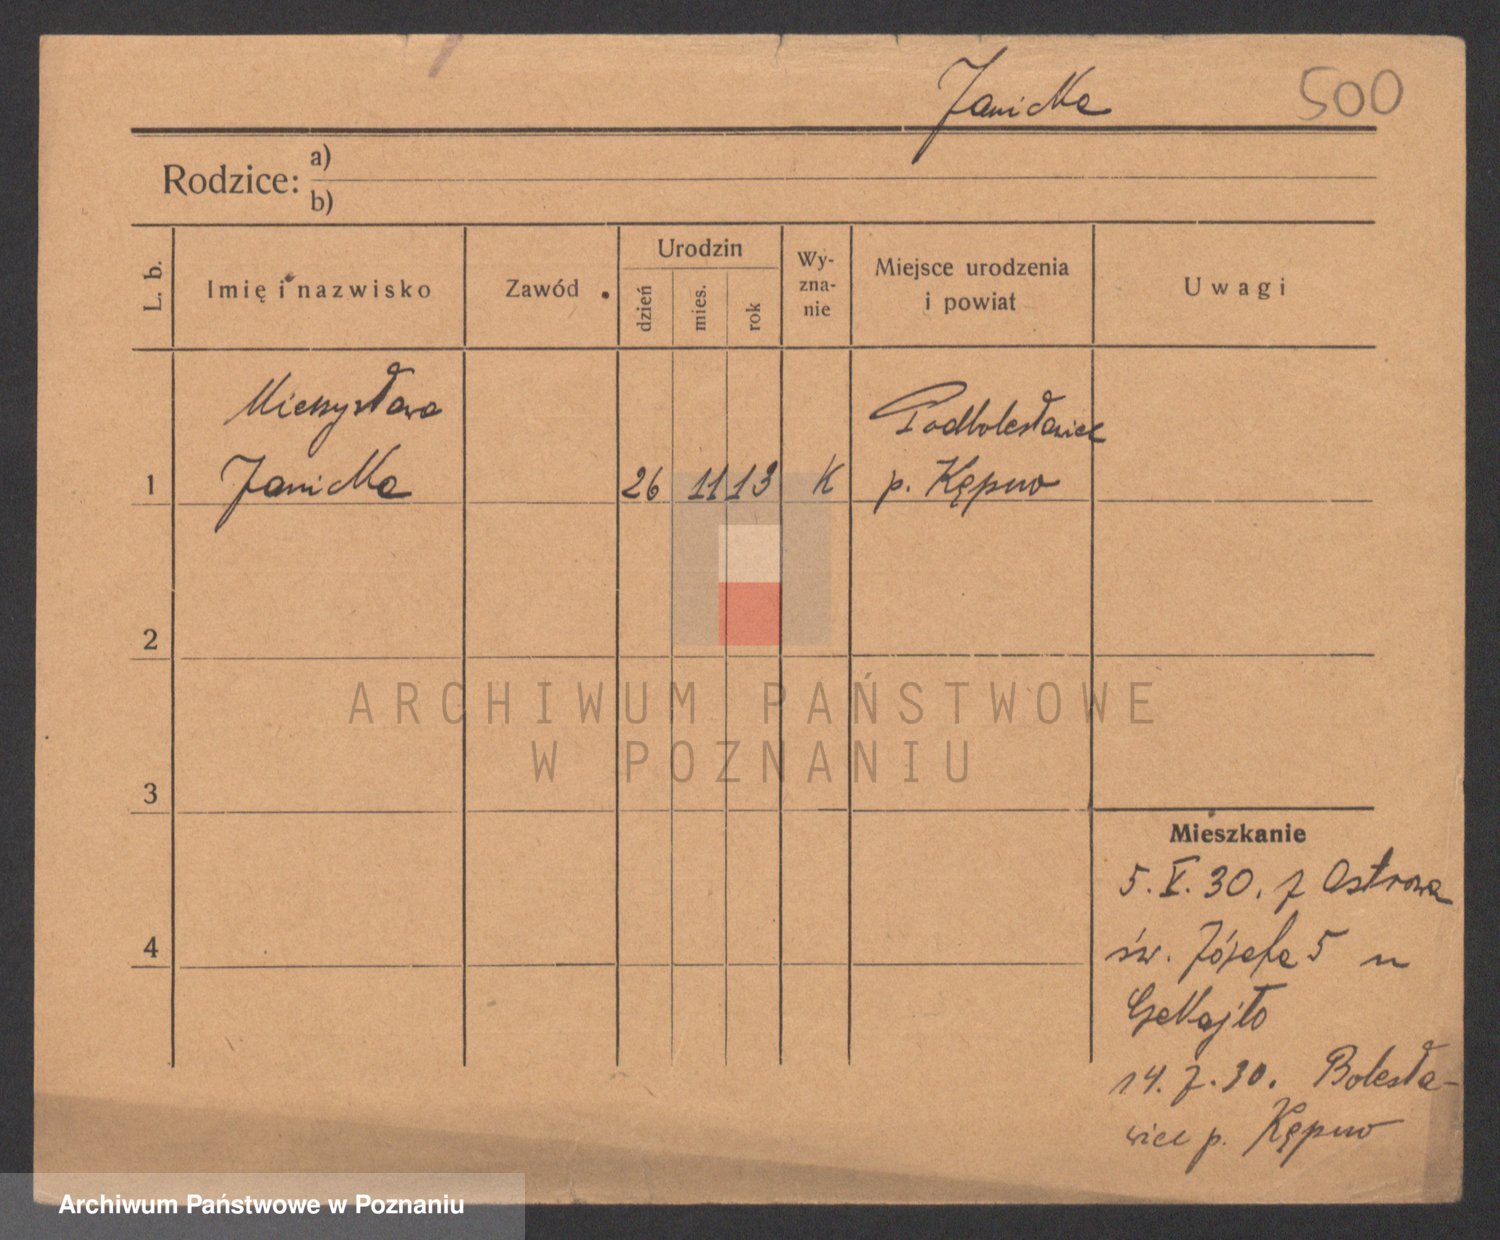 Janicka
500
Rodzice: a)
b)
L. b.
Imię i nazwisko
Zawód
Urodzin
dzień
mies.
rok
Wy-
zna-
nie
Miejsce urodzenia
i powiat
Uwagi
Mieczysława
Podbolesławiec
1
Janicka
26
11
13
K
p. Kępno
2
ARCHIWUM PAŃSTWOWE
W POZNANIU
3
Mieszkanie
5. V. 30. z Ostrowa
4
św. Józefa 5 u
14. 7. 30. Bolesła-
wiec p. Kępno
Archiwum Państwowe w Poznaniu